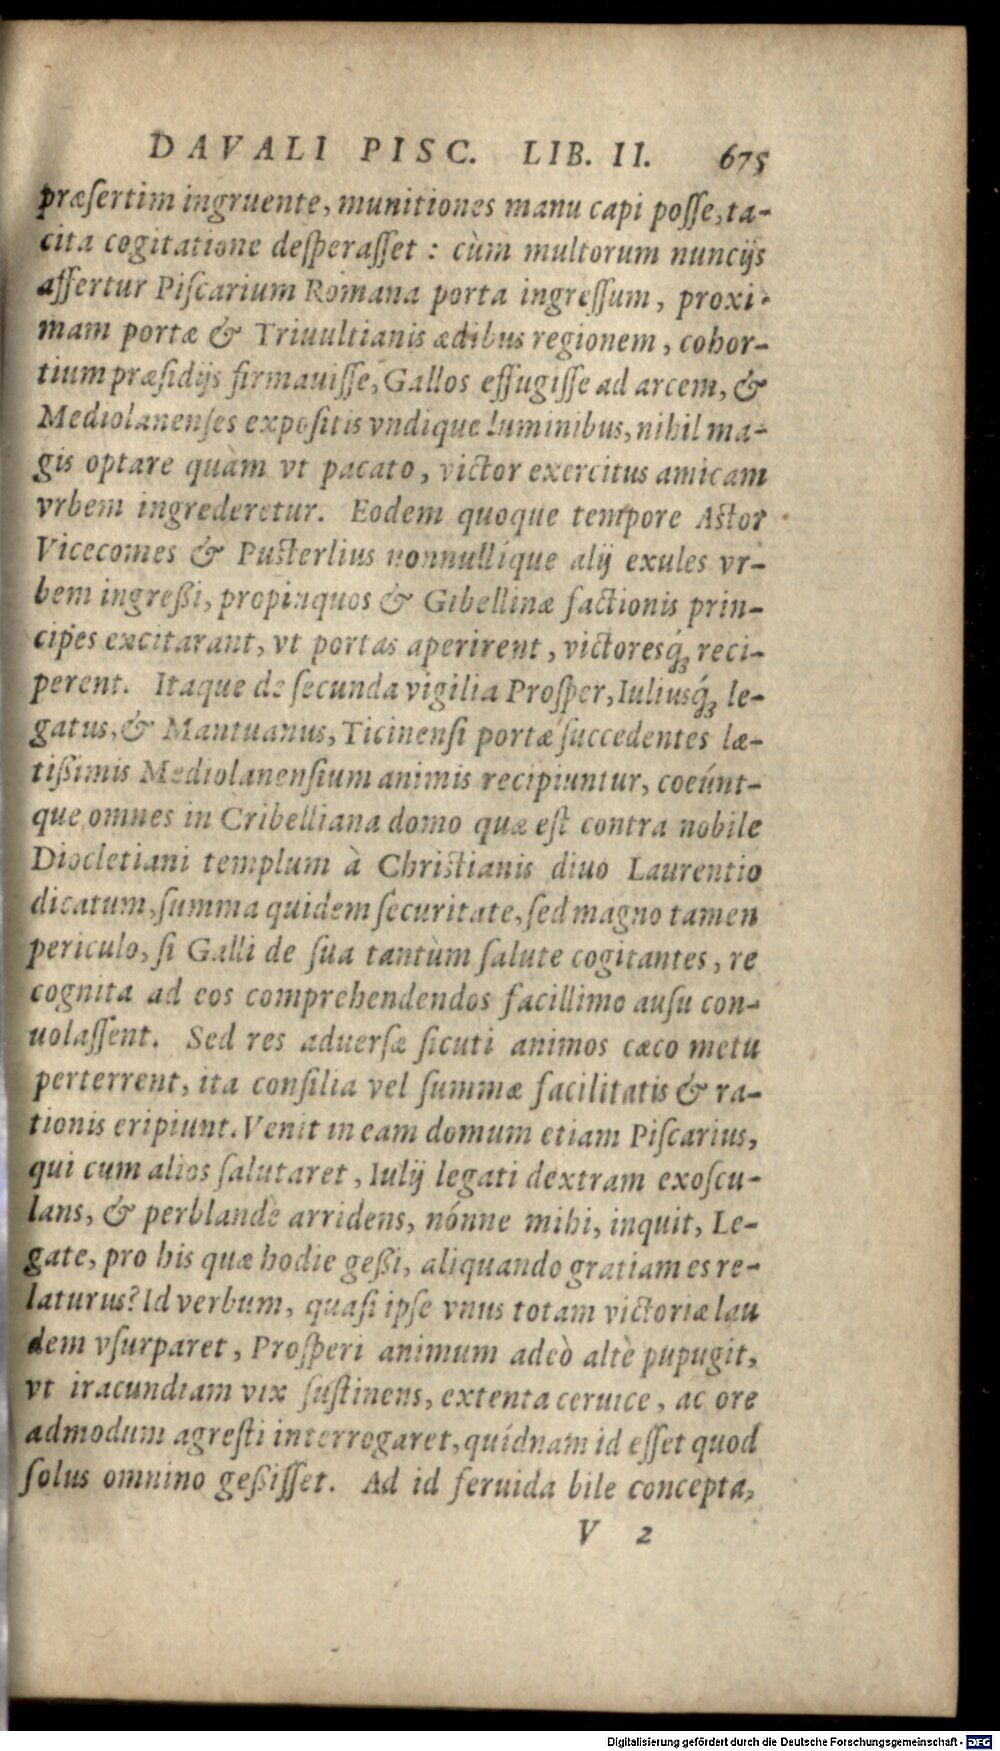 DAVALI PISC. LIB. II. 675
præſertim ingruente, munitiones manu capi poſſe, ta-
cita cogitatione deſperaſſet : cùm multorum nuncijs
affertur Piſcarium Romana porta ingreſſum, proxi-
mam portæ & Triuultianis ædibus regionem, cohor-
tium præſidijs firmauiſſe, Gallos effugiſſe ad arcem, &
Mediolanenſes expoſitis vndique luminibus, nihil ma-
gis optare quàm vt pacato, victor exercitus amicam
vrbem ingrederetur. Eodem quoque tempore Astor
Vicecomes & Pusterlius nonnullíque alij exules vr-
bem ingreßi, propinquos & Gibellinæ factionis prin-
cipes excitarant, vt portas aperirent, victoresq́; reci-
perent. Itaque de ſecunda vigilia Proſper, Iuliusq́; le-
gatus, & Mantuanus, Ticinenſi portæ ſuccedentes læ-
tißimis Mediolanenſium animis recipiuntur, coeúnt-
que omnes in Cribelliana domo quæ eſt contra nobile
Diocletiani templum à Christianis diuo Laurentio
dicatum, ſumma quidem ſecuritate, ſed magno tamen
periculo, ſi Galli de ſua tantùm ſalute cogitantes, re
cognita ad eos comprehendendos facillimo auſu con-
uolaſſent. Sed res aduerſæ ſicuti animos cæco metu
perterrent, ita conſilia vel ſummæ facilitatis & ra-
tionis eripiunt. Venit in eam domum etiam Piſcarius,
qui cum alios ſalutaret, Iulij legati dextram exoſcu-
lans, & perblandè arridens, nónne mihi, inquit, Le-
gate, pro his quæ hodie geßi, aliquando gratiam es re-
laturus? Id verbum, quaſi ipſe vnus totam victoriæ lau
dem vſurparet, Proſperi animum adeò altè pupugit,
vt iracundiam vix ſuſtinens, extenta ceruice, ac ore
admodum agreſti interrogaret, quídnam id eſſet quod
ſolus omnino geßiſſet. Ad id feruida bile concepta,
V 2
Digitalisierung gefördert durch die Deutsche Forschungsgemeinschaft - DFG